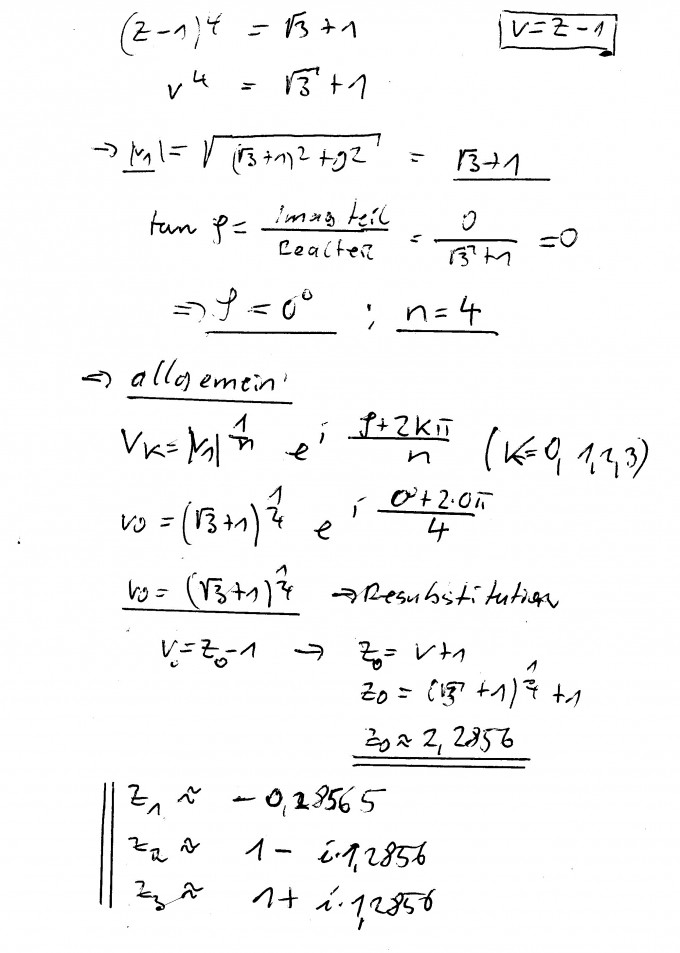 (z-1)⁴ = √3+1 v=z-1
v⁴ = √3+1
→ |v₁| = √((√3+1)²+0²) = √3+1
tan φ = Imag teil / Realteil = 0 / (√3+1) = 0
⇒ φ = 0° ; n=4
⇒ allgemein:
Vk = |v₁|^(1/n) e^(i (φ+2kπ)/n) (k=0, 1,2,3)
v0 = (√3+1)^(1/4) e^(i (0°+2·0π)/4)
v0 = (√3+1)^(1/4) → Resubstitution
v₀=z₀-1 → z₀= v+1
z0 = (√3+1)^(1/4) +1
z0 ≈ 2,2856
z₁ ≈ -0,28565
z₂ ≈ 1- i·1,2856
z₃ ≈ 1+ i·1,2856